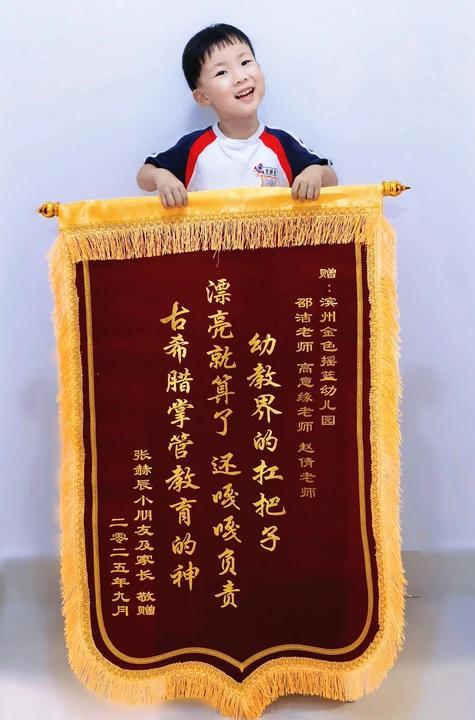 赠：滨州金色摇蓝幼儿园
邵洁老师 高意缘老师 赵倩老师
幼教界的扛把子
漂亮就算了 还嘎嘎负责
古希腊掌管教育的神
张赫辰小朋友及家长 敬赠
二零二五年九月